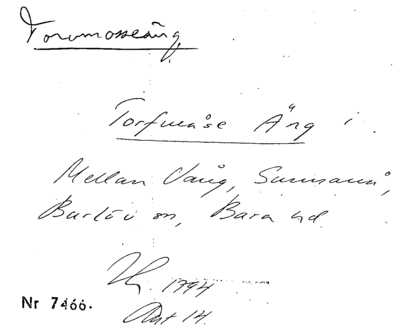 Torvmosseäng
Torfmåse Äng i
Mellan Vång, Sunnanå,
Burlöv sn, Bara hd
1794
Akt 14.
Nr 7466.